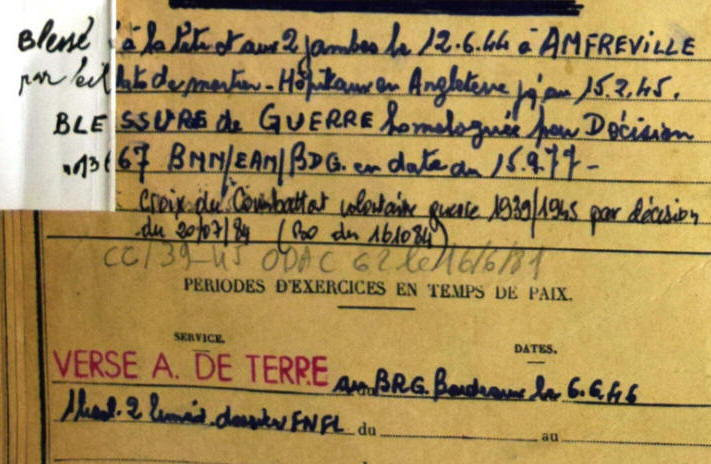 Blessé à la tête et aux 2 jambes le 12.6.44 à AMFREVILLE
par éclats de mortier - Hôpitaux en Angleterre jq'au 15.2.45.
BLESSURE de GUERRE homologuée par Décision
n° 1367 BNN/EAN/BDG. en date du 15.9.77 -
Croix du Combattant volontaire guerre 1939/1945 par décision
du 20/07/84 (BO du 161084)
CC/39-45 ODAC 62 le 16/6/81
PERIODES D'EXERCICES EN TEMPS DE PAIX.
SERVICE. DATES.
VERSE A. DE TERRE au BRG. Bordeaux le 6.6.46
dossier FNFL du au